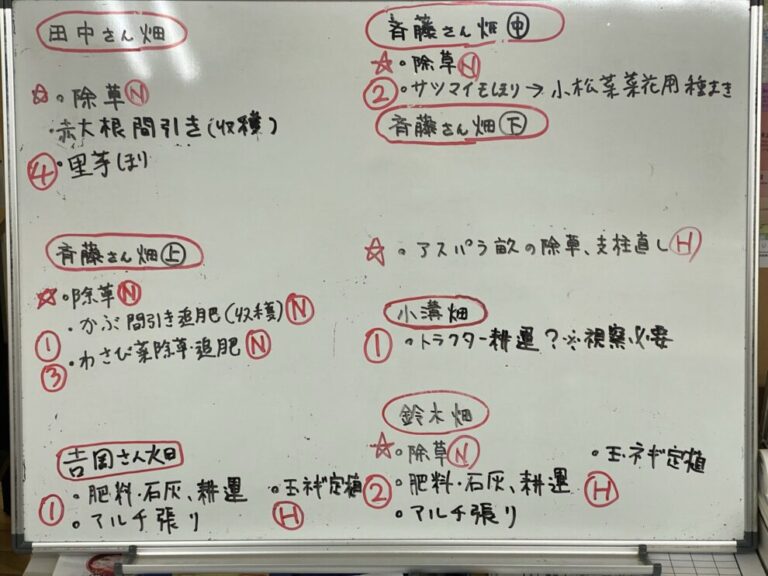 田中さん畑
☆・除草 Ⓝ
・赤大根間引き(収穫)
④・里芋ほり
斉藤さん畑㊤
☆・除草 Ⓝ
・かぶ間引き追肥(収穫) Ⓝ
①
③・わさび菜除草・追肥 Ⓝ
吉岡さん畑
①・肥料・石灰、耕運 ・玉ネギ定植
・マルチ張り Ⓗ
斉藤さん畑㊥
☆・除草 Ⓝ
②・サツマイモほり→小松菜菜花用種まき
斉藤さん畑㊦
☆・アスパラ畝の除草、支柱直し Ⓗ
小溝畑
①・トラクター耕運?※視察必要
鈴木畑
☆・除草 Ⓝ ・玉ネギ定植
②・肥料・石灰、耕運 Ⓗ
・マルチ張り